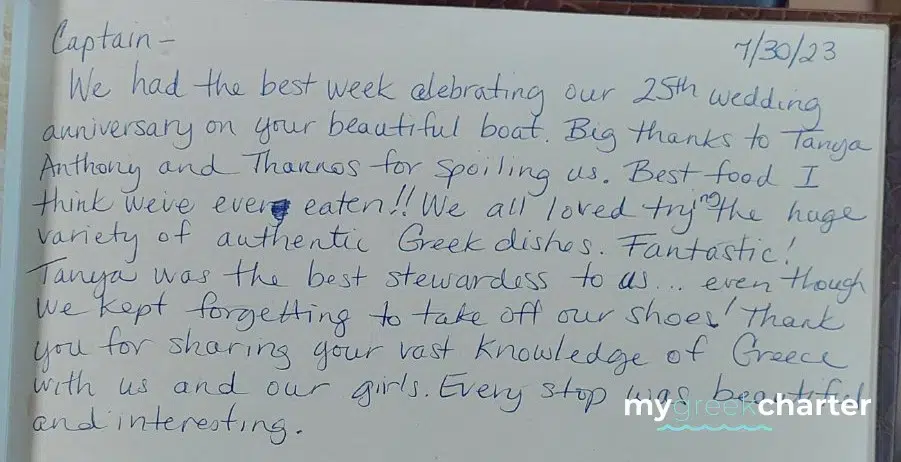 Captain - 7/30/23
We had the best week celebrating our 25th wedding
anniversary on your beautiful boat. Big thanks to Tanya
Anthony and Thannos for spoiling us. Best food I
think we've ever eaten!! We all loved trying the huge
variety of authentic Greek dishes. Fantastic!
Tanya was the best stewardess to us... even though
we kept forgetting to take off our shoes! Thank
you for sharing your vast knowledge of Greece
with us and our girls. Every stop was beautiful
and interesting.
mygreekcharter